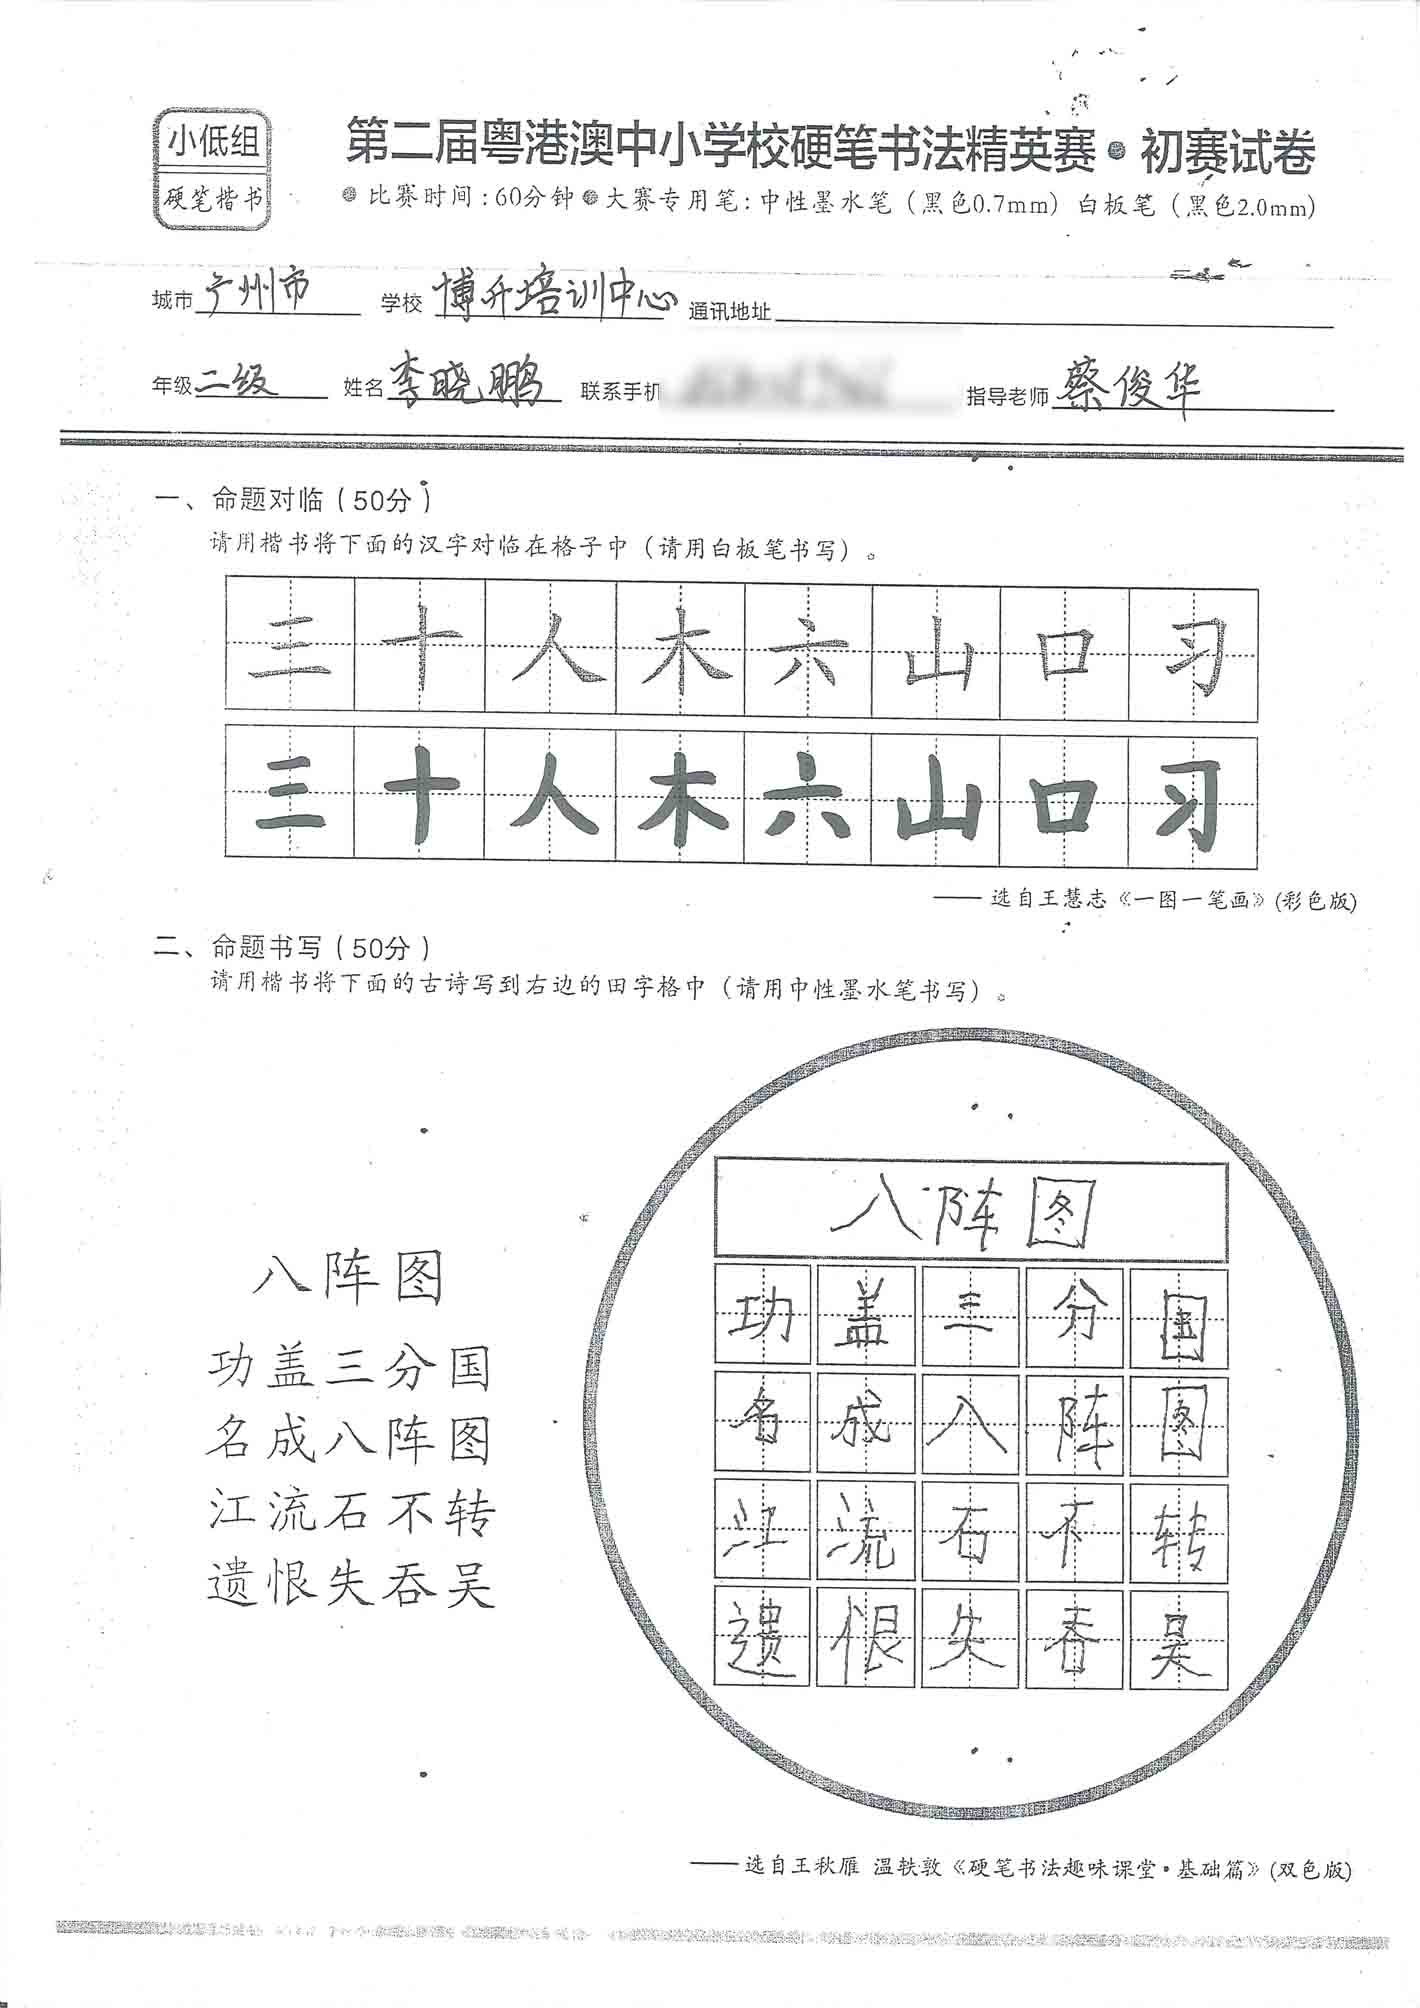 小低组
硬笔楷书
第二届粤港澳中小学校硬笔书法精英赛·初赛试卷
比赛时间:60分钟 大赛专用笔:中性墨水笔(黑色0.7mm) 白板笔(黑色2.0mm)
城市 广州市 学校 博升培训中心 通讯地址
年级 二级 姓名 李晓鹏 联系手机 指导老师 蔡俊华
一、命题对临(50分)
请用楷书将下面的汉字对临在格子中(请用白板笔书写)。
三十人木六山口习
三十人木六山口习
——选自王慧志《一图一笔画》(彩色版)
二、命题书写(50分)
请用楷书将下面的古诗写到右边的田字格中(请用中性墨水笔书写)。
八阵图
功盖三分国
名成八阵图
江流石不转
遗恨失吞吴
八阵图
功盖三分国
名成八阵图
江流石不转
遗恨失吞吴
——选自王秋雁 温轶敦《硬笔书法趣味课堂·基础篇》(双色版)